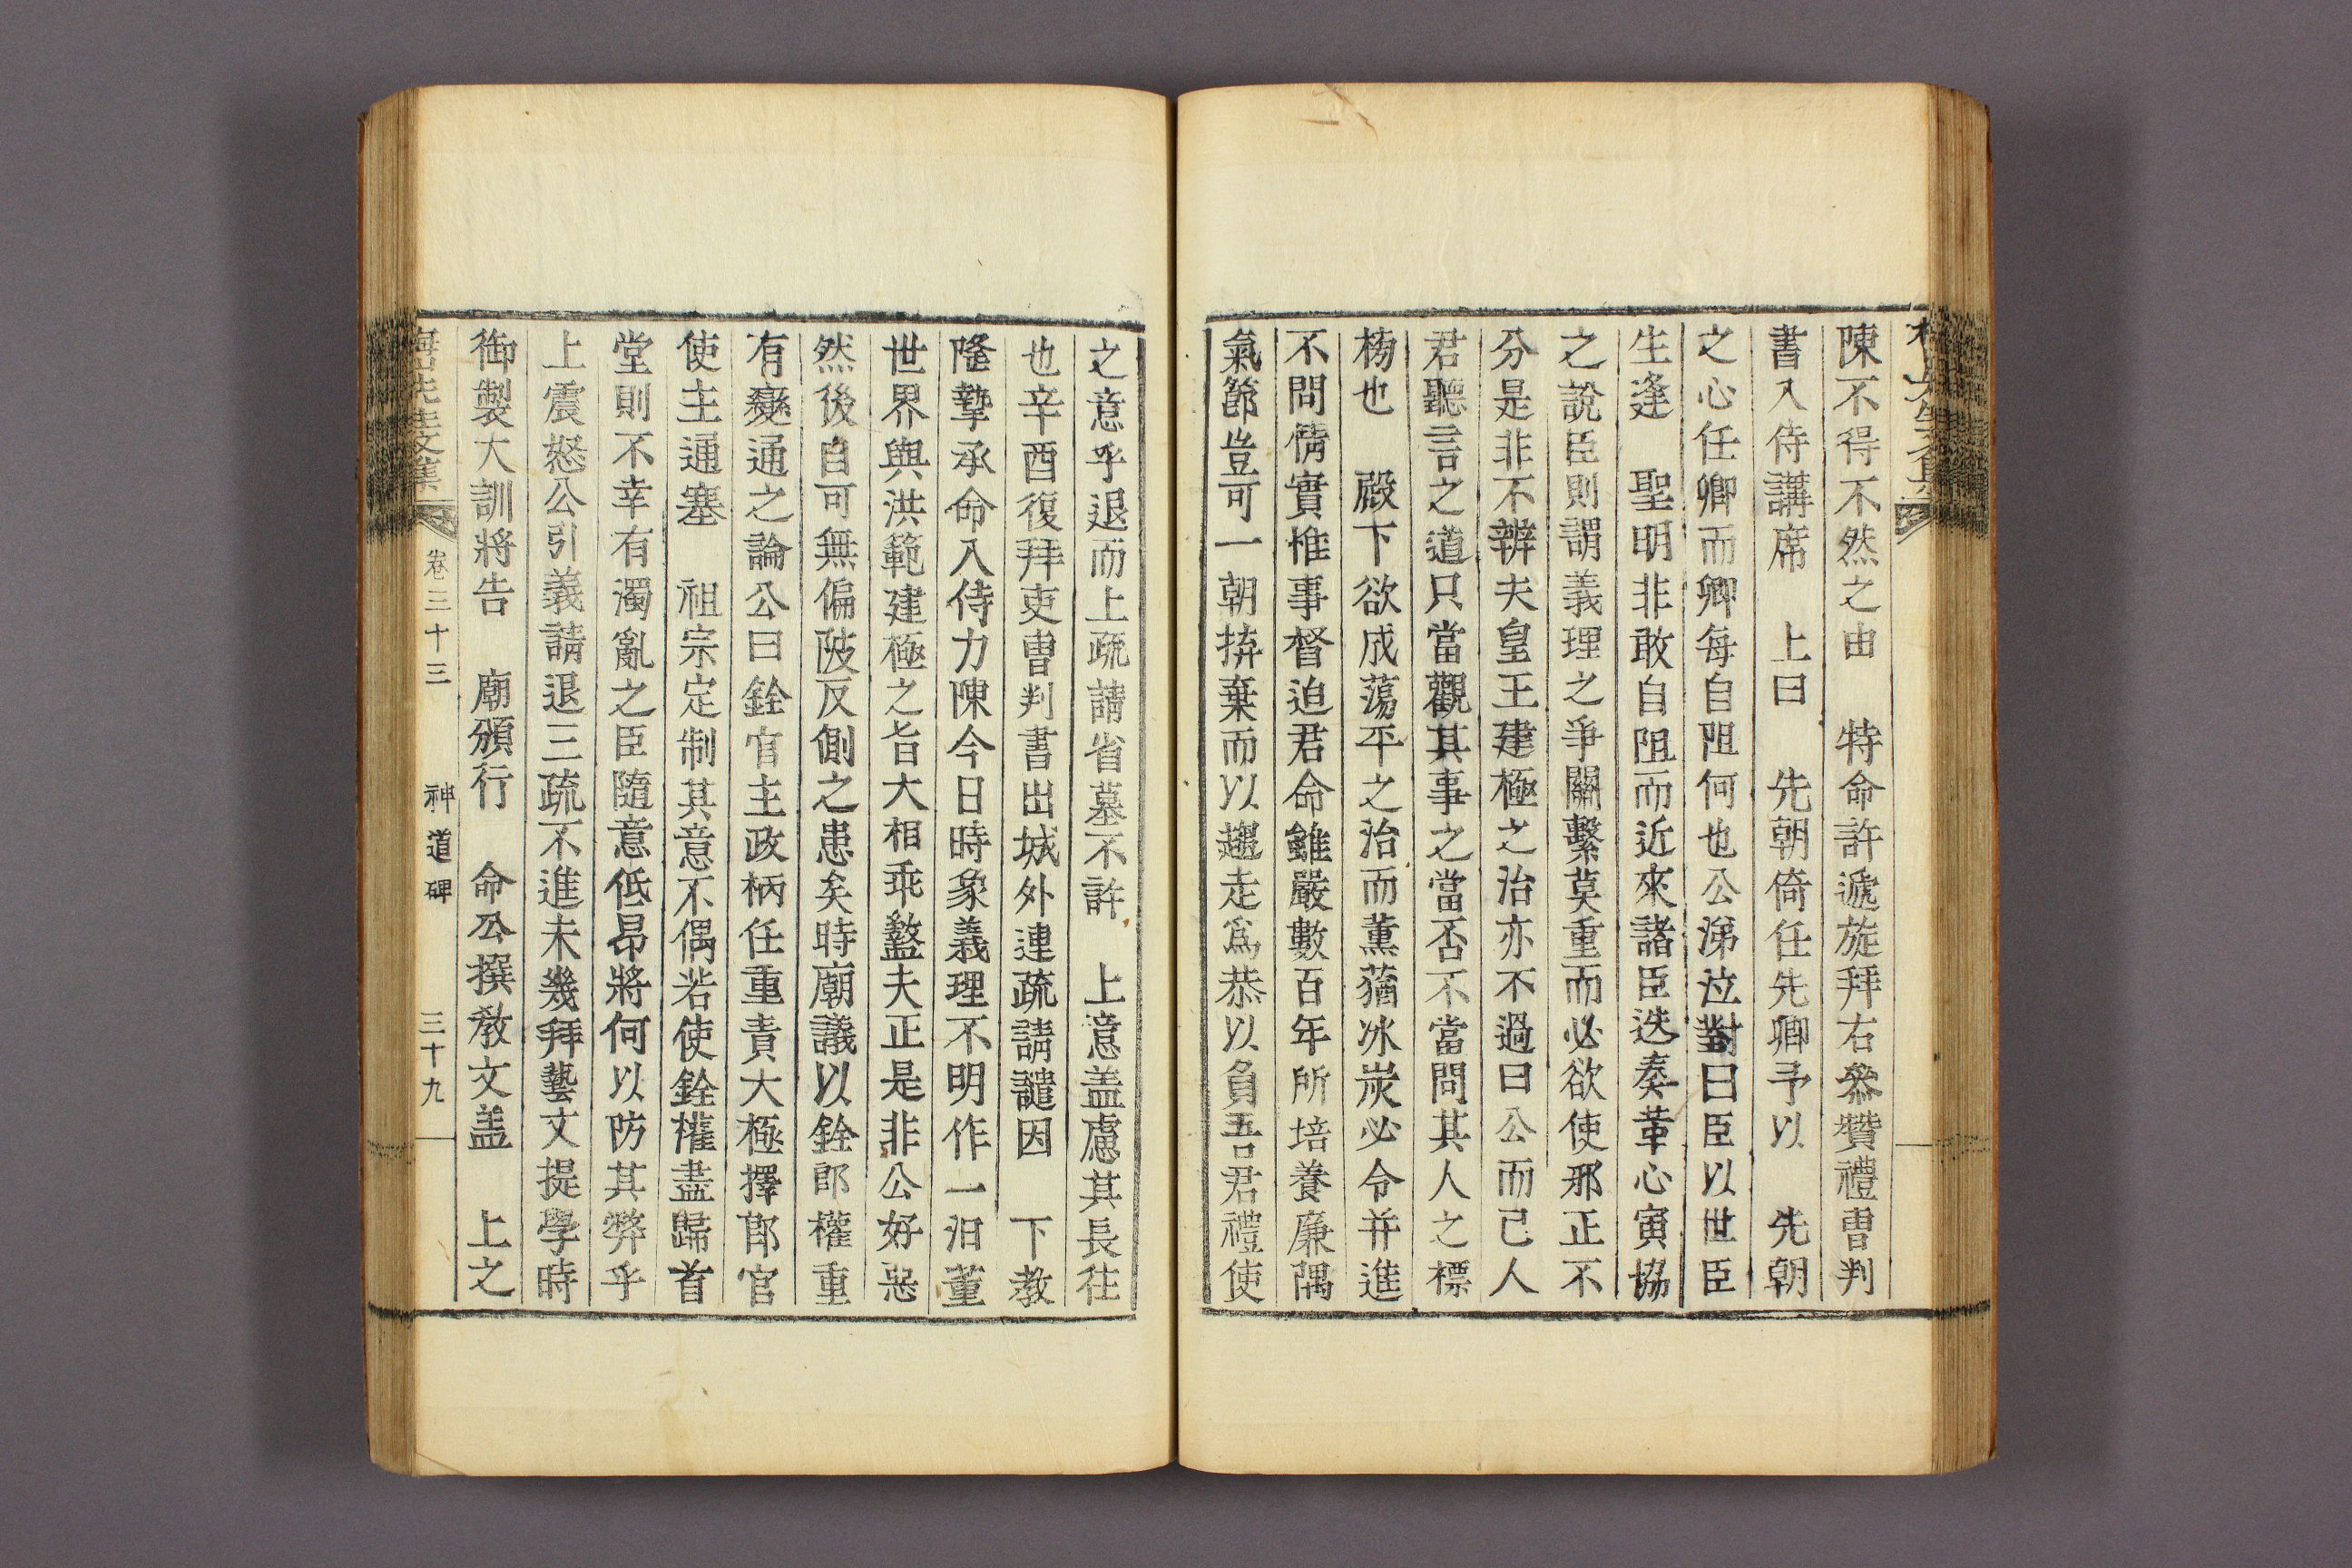 陳不得不然之由　特命許遞旋拜右叅贊禮曹判
書入侍講席　上曰　先朝倚任先卿予以　先朝
之心任卿而卿每自阻何也公涕泣對曰臣以世臣
生逢　聖明非敢自阻而近來諸臣迭奏革心寅協
之說臣則謂義理之爭關繫莫重而必欲使邪正不
分是非不辨夫皇王建極之治亦不過曰公而已人
君聽言之道只當觀其事之當否不當問其人之標
榜也　殿下欲成蕩平之治而薰蕕氷炭必令并進
不問情實惟事督迫君命雖嚴數百年所培養廉隅
氣節豈可一朝拚棄而以趨走爲恭以負吾君禮使
之意乎退而上疏請省墓不許　上意盖慮其長往
也辛酉復拜吏曹判書出城外連疏請譴因　下教
隆摯承命入侍力陳今日時象義理不明作一汩董
世界與洪範建極之旨大相乖盭夫正是非公好惡
然後自可無偏陂反側之患矣時廟議以銓郎權重
有變通之論公曰銓官主政柄任重責大極擇郎官
使主通塞　祖宗定制其意不偶若使銓權盡歸首
堂則不幸有濁亂之臣隨意低昂將何以防其弊乎
上震怒公引義請退三疏不進未幾拜藝文提學時
御製大訓將告　廟頒行　命公撰敎文盖　上之
先生文集　卷三十三　神道碑　三十九